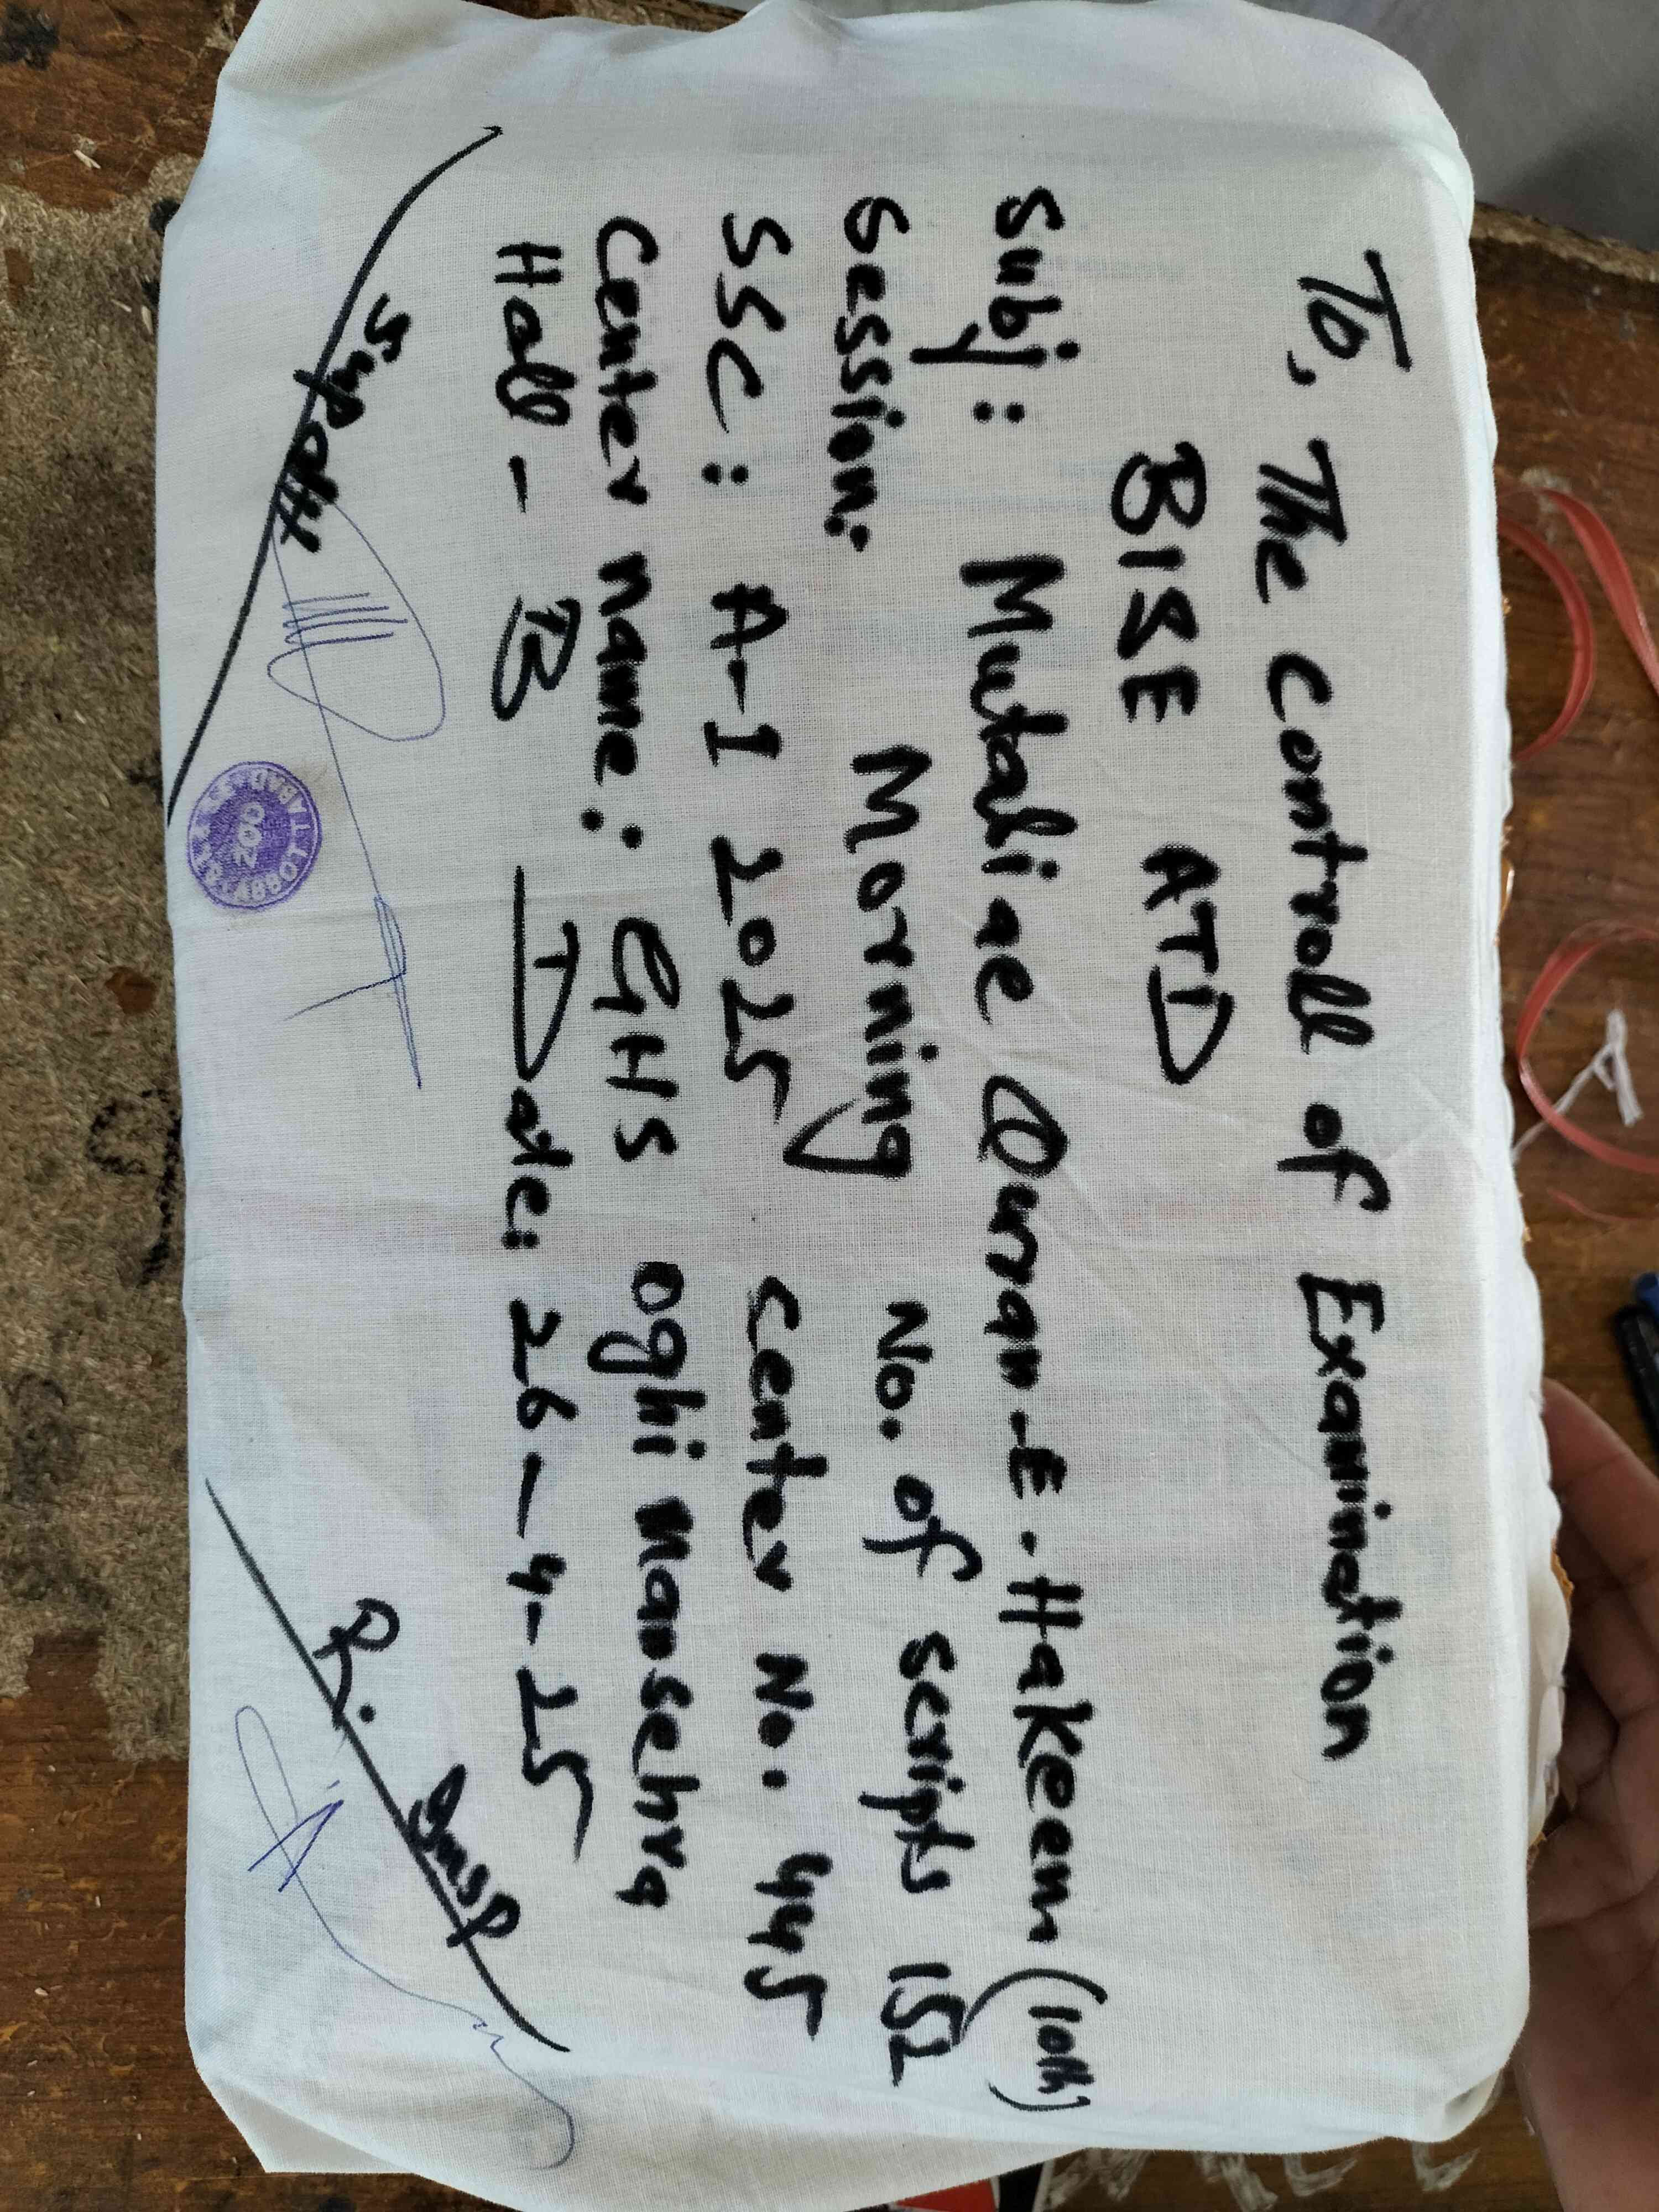 To, The Controll of Examination
BISE ATD
Subj: Mutaliae Quran-E-Hakeem (10th)
Session: Morning No. of scripts 152
SSC: A-I 2025 Center No. 445
Center name: GHS oghi Mansehra
Hall - B Date: 26-4-25
Supdtt
R. Insp
200